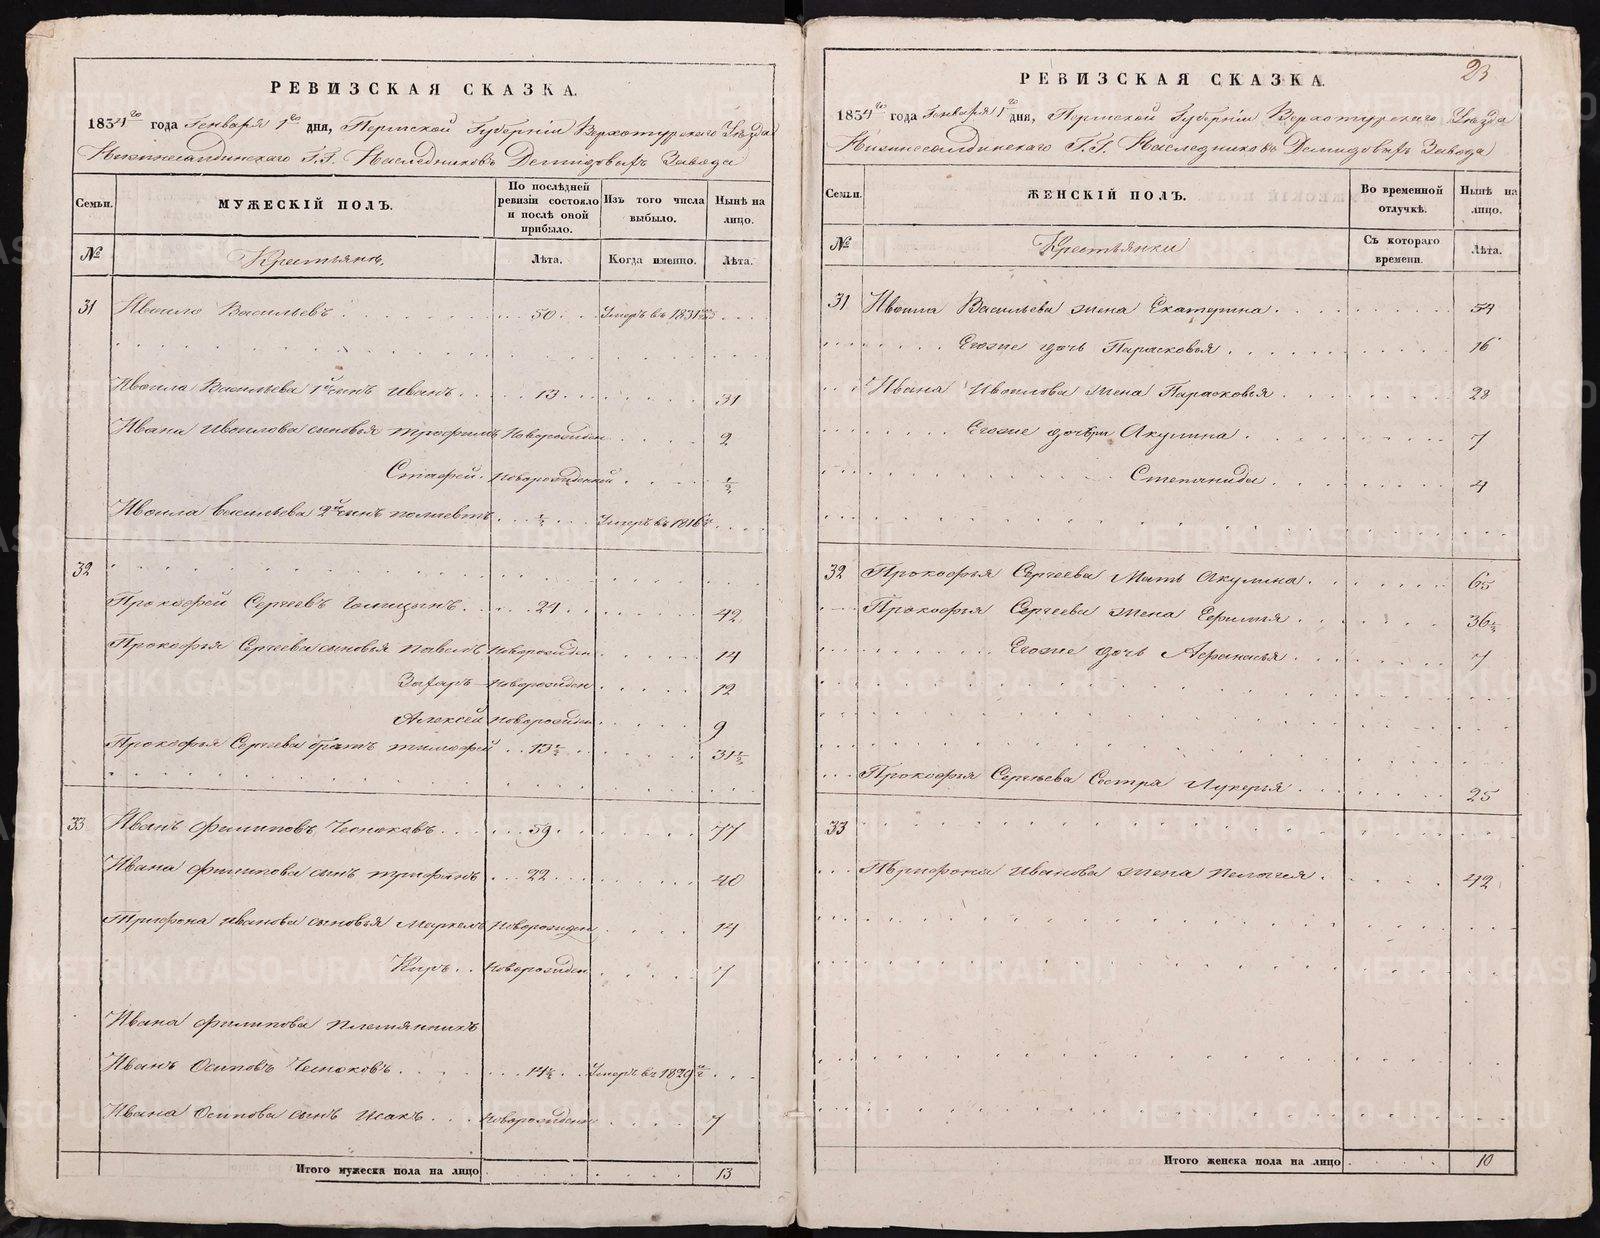 РЕВИЗСКАЯ СКАЗКА.
1834го года Генваря 1го дня, Пермской Губернiи Верхотурскаго Уѣзда
Нижнесалдинскаго Г.Г. Наслѣдниковъ Демидовыхъ Завода
Семьи.
МУЖЕСКIЙ ПОЛЪ.
По послѣдней ревизiи состояло и послѣ оной прибыло.
Изъ того числа выбыло.
Нынѣ на лицо.
№
Крестьянъ,
Лѣта.
Когда именно.
Лѣта.
31 Ивоило Васильевъ 50 Умеръ въ 1831
Ивоила Васильева 1й сынъ Иванъ 13 31
Ивана Ивоилова сыновья Трофимъ Новорожден 2
Стафей Новорожденной ½
Ивоила Васильева 2й сынъ ½ Умеръ въ 1816
32
Прокофей Сергеевъ Голицынъ 24 42
Прокофья Сергеева сыновья Павелъ Новорожден 14
Захаръ Новорожден 12
Алексей Новорожден 9
Прокофья Сергеева братъ Тимофей 13½ 31½
33 Иванъ Филиповъ Чесноковъ 59 77
Ивана Филипова сынъ Трифанъ 22 40
Трифона Иванова сыновья Маркелъ Новорожден 14
Киръ Новорожден 7
Ивана Филипова племянникъ
Иванъ Осиповъ Чесноковъ 14½ Умеръ въ 1829
Ивана Осипова сынъ Исакъ Новорожден 7
Итого мужеска пола на лицо 13
23
РЕВИЗСКАЯ СКАЗКА.
1834го года Генваря 1го дня, Пермской Губернiи Верхотурскаго Уѣзда
Нижнесалдинскаго Г.Г. Наслѣдниковъ Демидовыхъ Завода
Семьи.
ЖЕНСКIЙ ПОЛЪ.
Во временной отлучкѣ.
Нынѣ на лицо.
№
Крестьянки
Съ котораго времени.
Лѣта.
31 Ивоила Васильева жена Екатерина 54
Егоже дочь Парасковья 16
Ивана Ивоилова жена Парасковья 28
Егоже дочери Акулина 7
Степанида 4
32 Прокофья Сергеева Мать Акулина 65
Прокофья Сергеева жена Ефимья 36½
Егоже дочь Афанасья 7
Прокофья Сергѣева Сестра Лукерья 25
33
Трифона Иванова жена Пелагея 42
Итого женска пола на лицо 10
METRIKI.GASO-URAL.RU